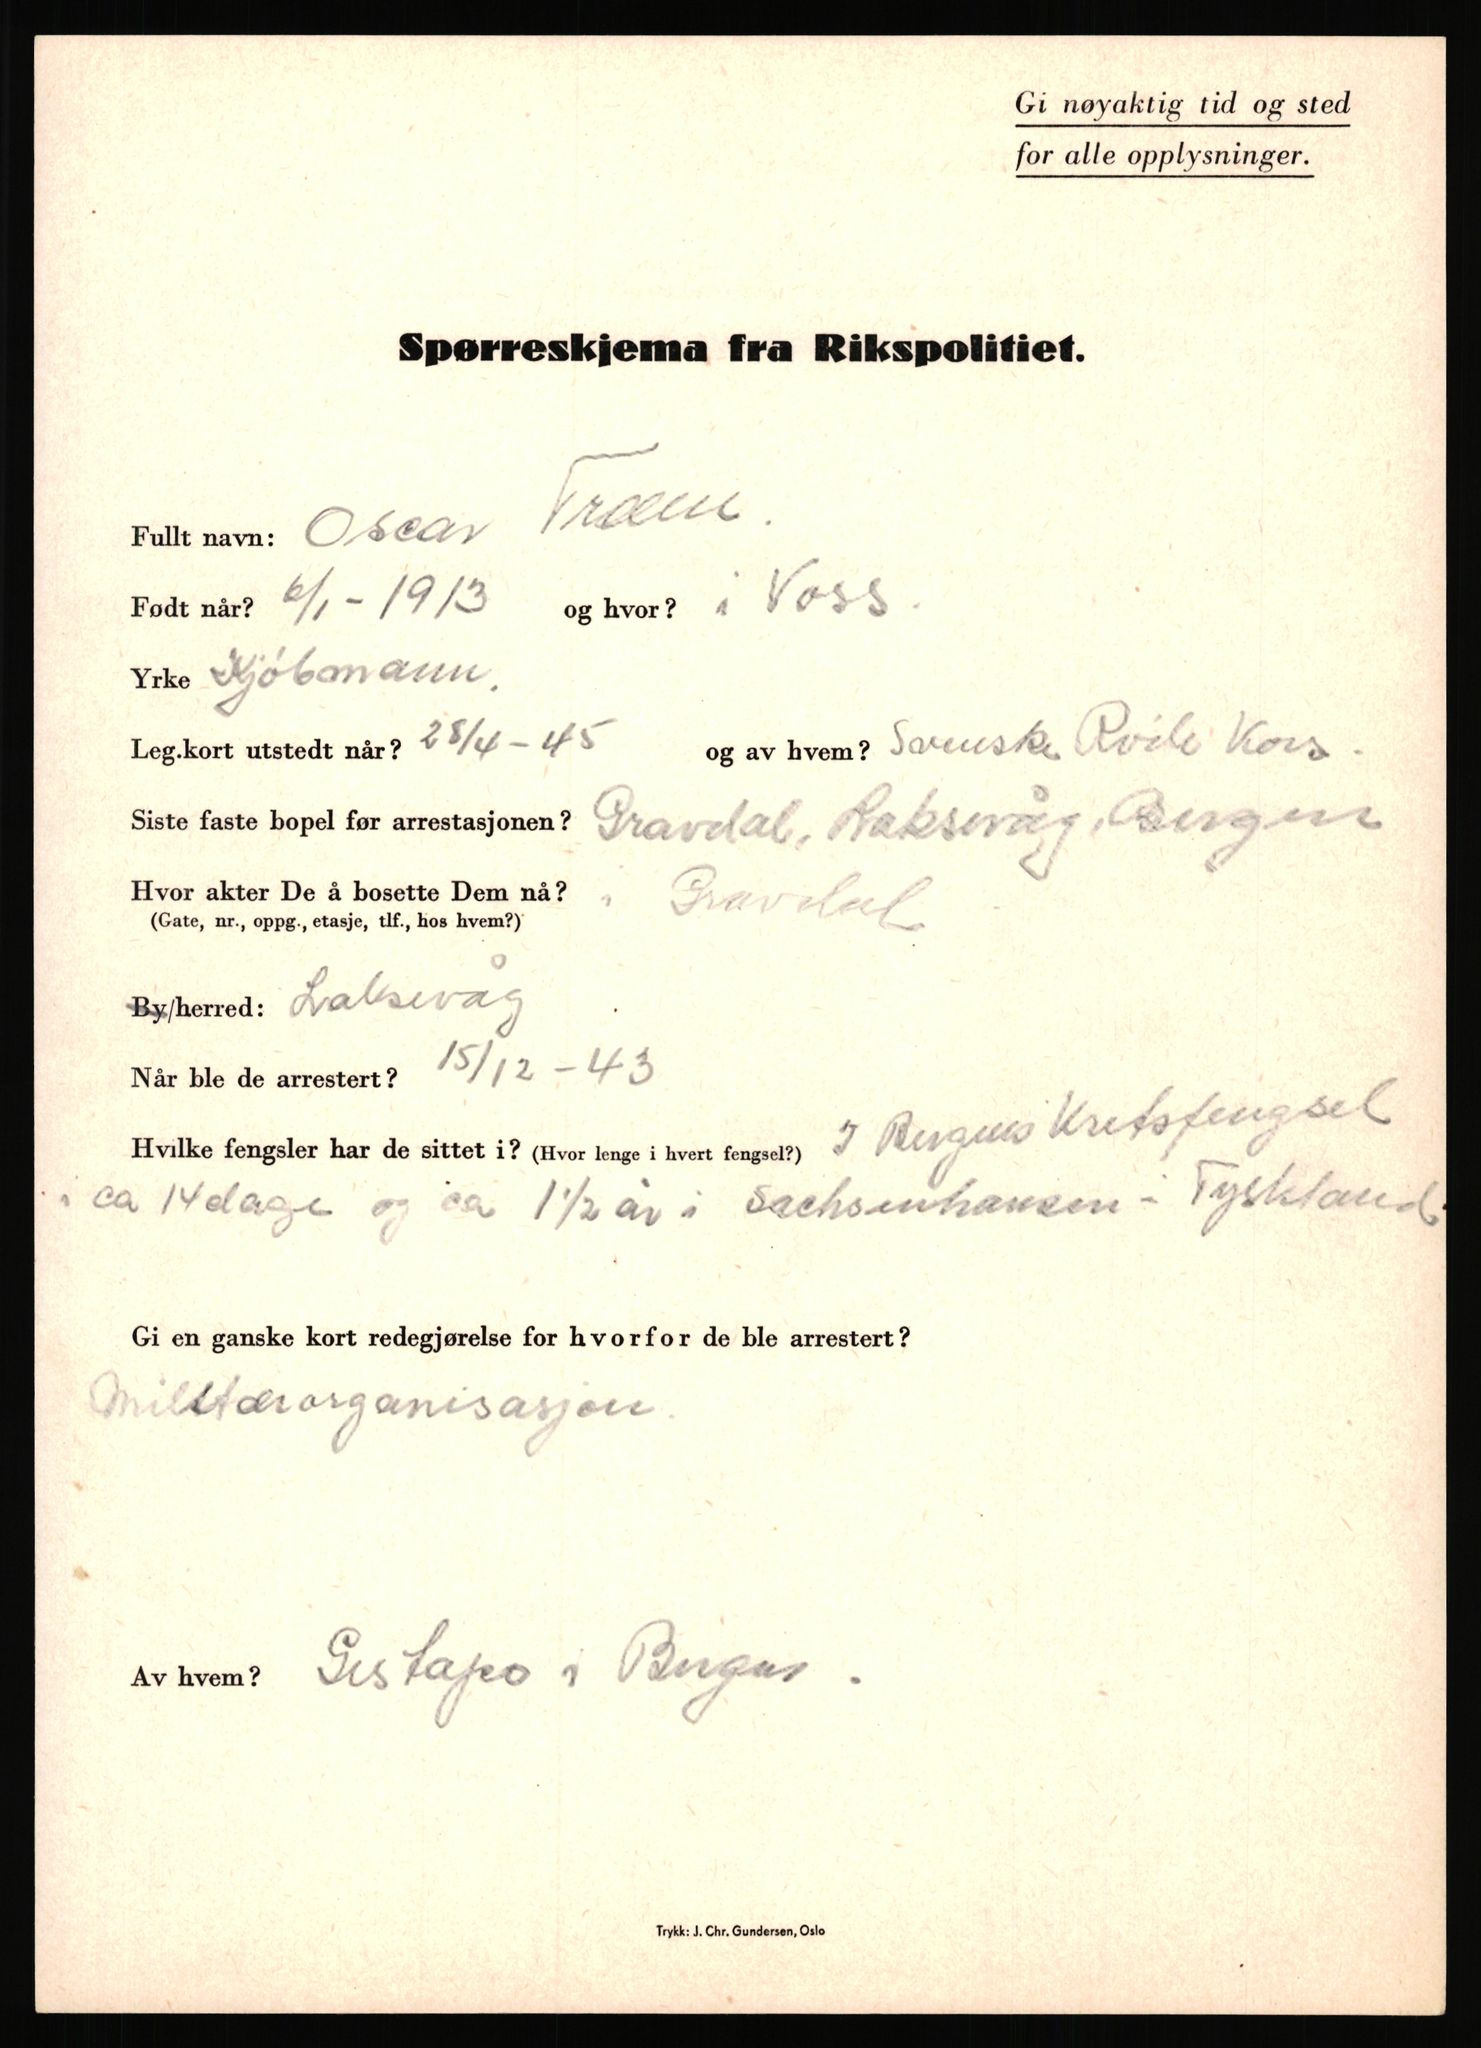 Gi nøyaktig tid og sted
for alle opplysninger.
Spørreskjema fra Rikspolitiet.
Fullt navn: Oscar Træen.
Født når? 6/1 - 1913 og hvor? i Voss.
Yrke Kjóbmann.
Leg.kort utstedt når? 28/4 - 45 og av hvem? Svenske Røde Kors.
Siste faste bopel før arrestasjonen? Gravdal, Laksevåg, Bergen
Hvor akter De å bosette Dem nå? i Gravdal
(Gate, nr., oppg., etasje, tlf., hos hvem?)
By/herred: Laksevåg
Når ble de arrestert? 15/12 - 43
Hvilke fengsler har de sittet i? (Hvor lenge i hvert fengsel?) I Bergens Kretsfengsel
i ca 14 dage og ca 1 1/2 år i Sachsenhausen i Tyskland.
Gi en ganske kort redegjørelse for hvorfor de ble arrestert?
Militærorganisasjon.
Av hvem? Gestapo i Bergen.
Trykk: J. Chr. Gundersen, Oslo